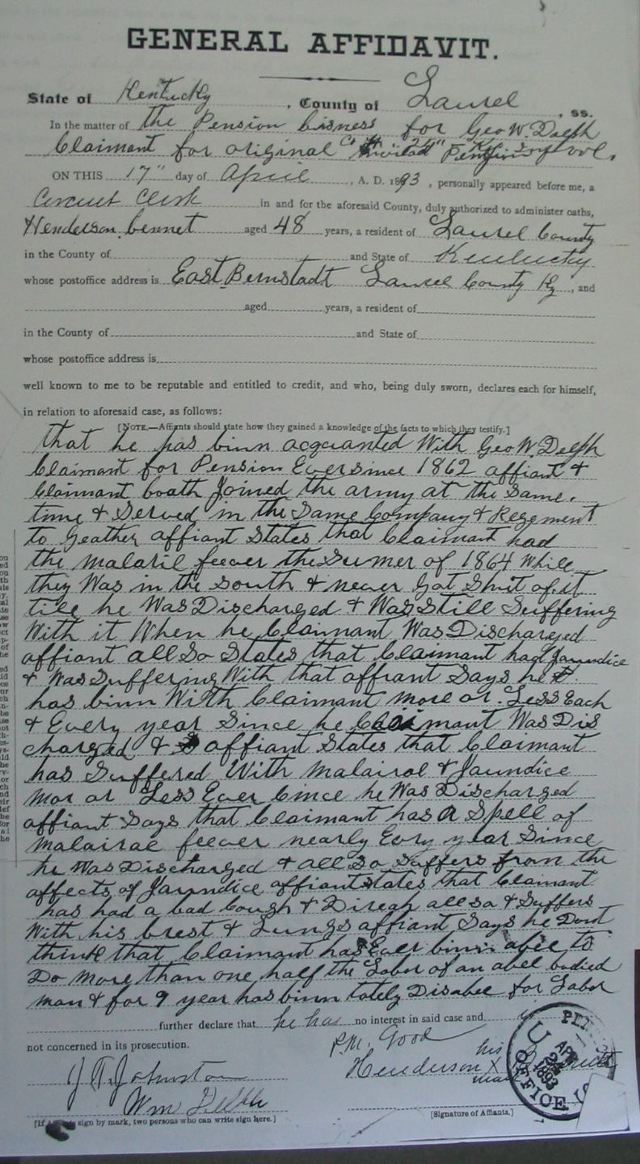 GENERAL AFFIDAVIT.
State of Kentucky, County of Laurel, ss.
In the matter of the Pension bisness for Geo W. Delph
Claimant for original Invalid Pension
ON THIS 17" day of April, A. D. 1893, personally appeared before me, a
Circuit Clerk in and for the aforesaid County, duly authorized to administer oaths,
Henderson bennet aged 48 years, a resident of Laurel County
in the County of and State of Kentucky
whose postoffice address is East Bernstadt Laurel County Ky, and
aged years, a resident of
in the County of and State of
whose postoffice address is
well known to me to be reputable and entitled to credit, and who, being duly sworn, declares each for himself,
in relation to aforesaid case, as follows:
[NOTE.—Affiants should state how they gained a knowledge of the facts to which they testify.]
that he has binn acquanted With Geo W. Delph
Claimant for Pension Ever since 1862 affiant &
Claimant boath Joined the army at the Same
time & Served in the Same Company & Regement
to Geather affiant States that Claimant had
the malaril feever the Sumer of 1864 while
they Was in the South & never Got Shut of it
till he Was Discharged & Was Still Suffering
With it When he Claimant Was Discharged
affiant all So States that Claimant had Jaundice
& Was Suffering With that affiant Says he
has binn With Claimant more or Less Each
& Every year Since he Claimant Was Dis
charged & affiant States that Claimant
has Suffered With malairol & Jaundice
mor or Less Ever Cince he Was Discharged
affiant Says that Claimant has a Spell of
malairae feever nearly Evry year Since
he Was Discharged & all So Suffers from the
affects of Jaundice affiant states that Claimant
has had a bad Cough & Direah all so & Suffers
With his brest & Lungs affiant Says he Dont
think that Claimant has Ever binn able to
Do more than one half the Labor of an abel bodied
man & for 9 year has binn totely Disabee for Labor
further declare that he has no interest in said case and
not concerned in its prosecution.
P.M. Good
his
Henderson X
mark
J. T. Johnston
Wm Delph
[If Affiants sign by mark, two persons who can write sign here.]
[Signature of Affiants.]
U
OFFICE
1893